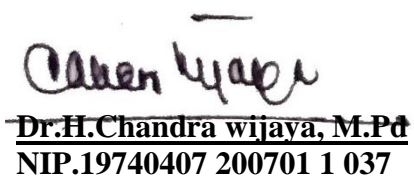 Dr.H.Chandra wijaya, M.Pd
NIP.19740407 200701 1 037